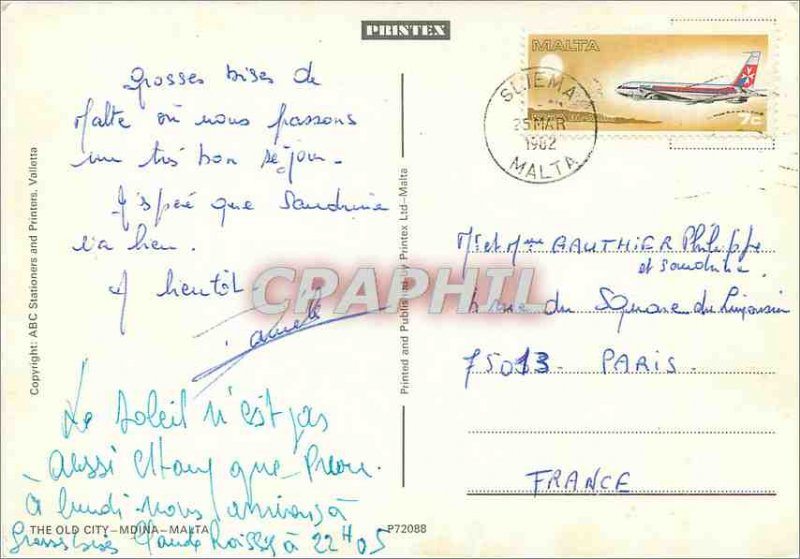 PRINTEX
MALTA
7c
SLIEMA
25 MAR
1982
MALTA
Grosses bises de
Malte où nous passons
un très bon séjour.
J'espère que Sandrine
va bien.
A bientôt.
Le soleil n'est pas
aussi que
à lundi nous arrivons à
Grosses bises Claude Roissy à 22H05
THE OLD CITY–MDINA–MALTA
P72088
Copyright: ABC Stationers and Printers, Valletta
Printed and Published by Printex Ltd–Malta
CPRAPHIL
Mr et Mme GAUTHIER Philippe
et Sandrine.
rue du Square du Limousin
75013 PARIS.
FRANCE